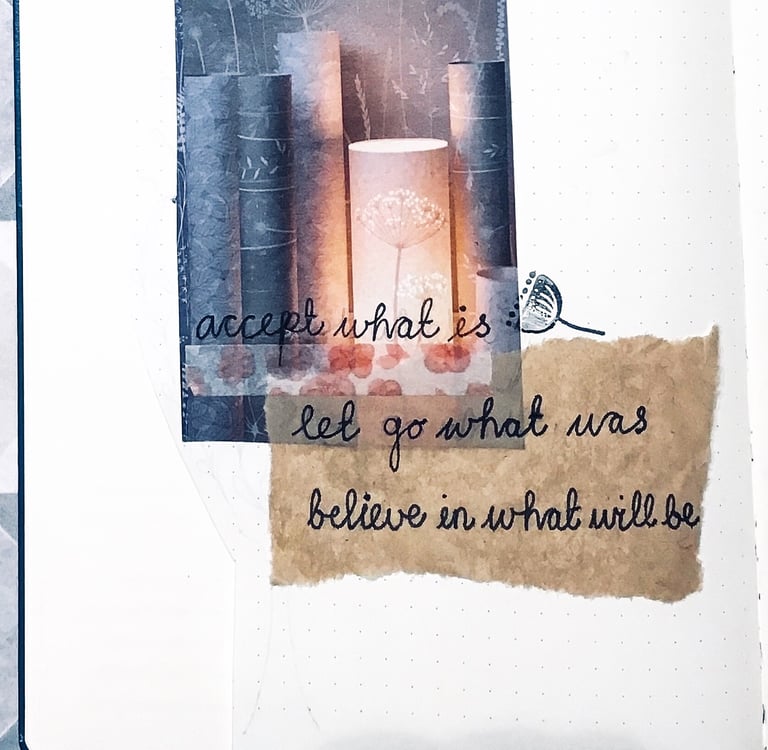 accept what is
let go what was
believe in what will be